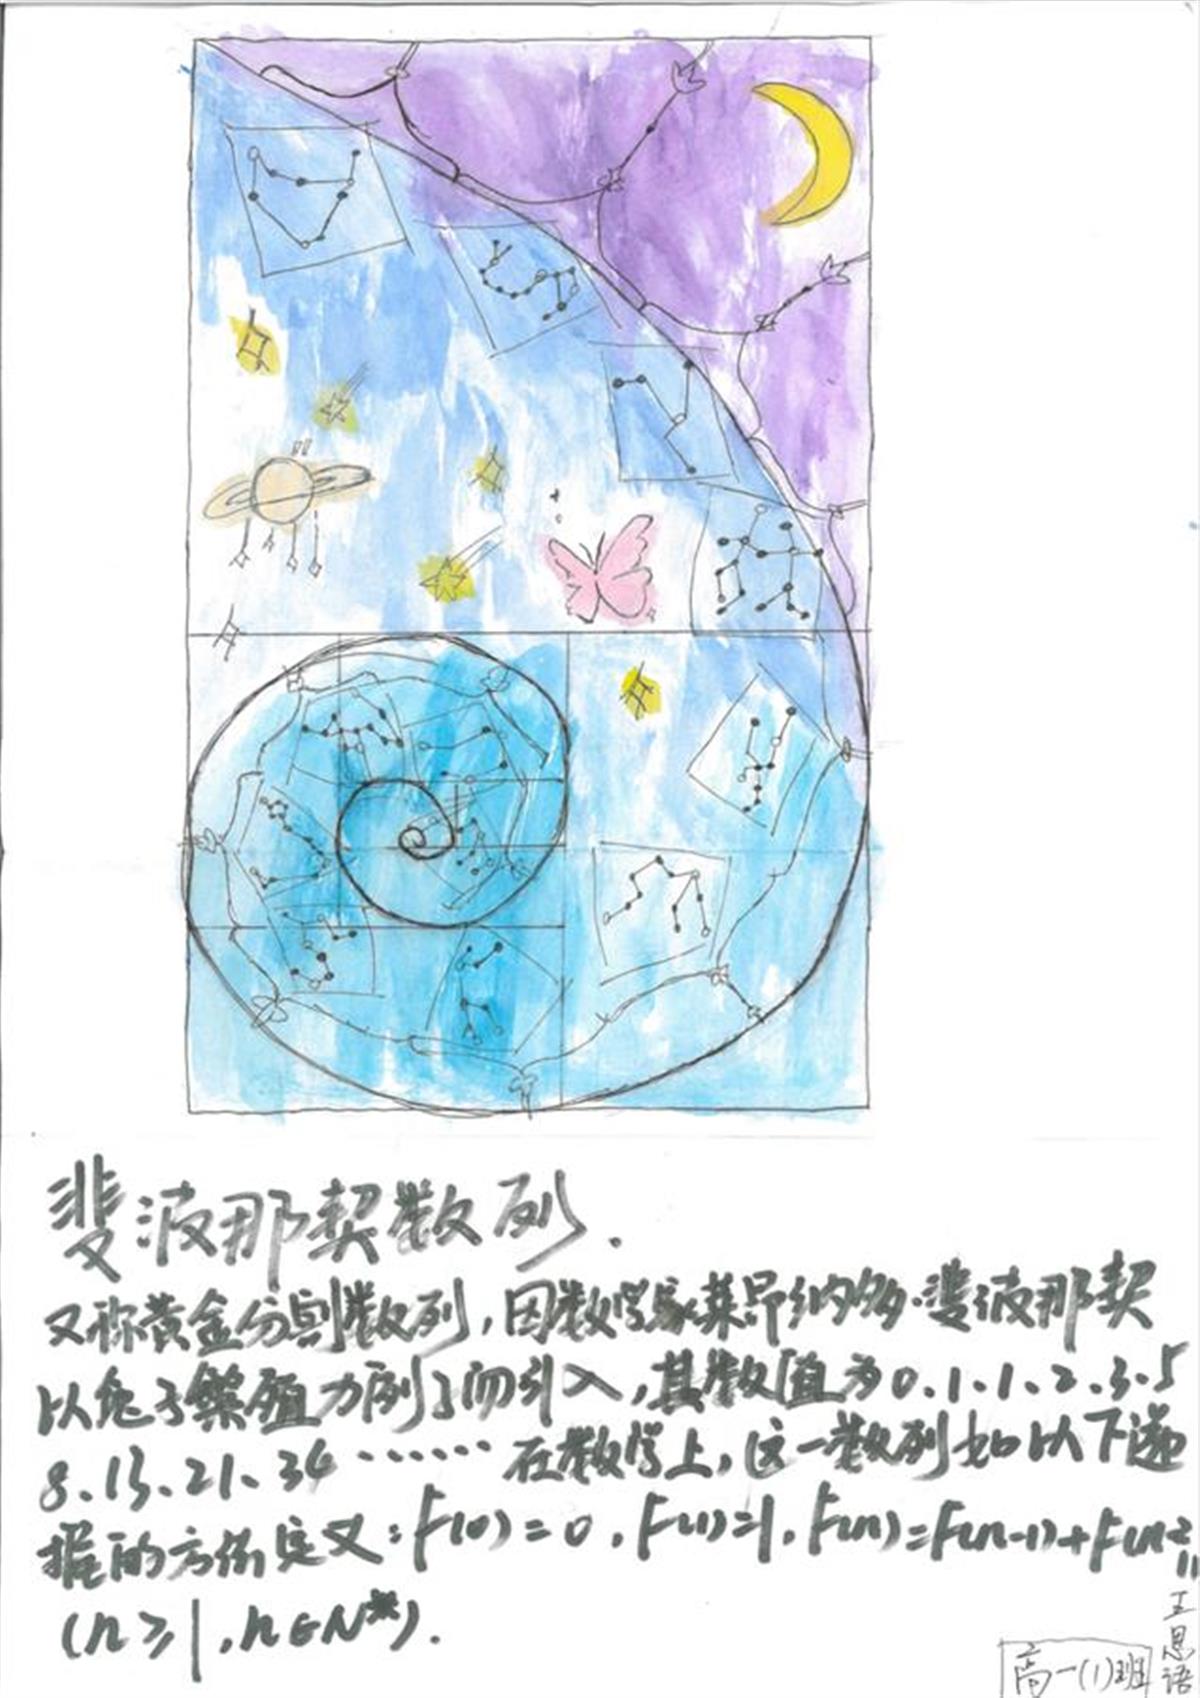 斐波那契数列.
又称黄金分割数列,因数学家莱昂纳多·斐波那契
以兔子繁殖为例子而引入,其数值为0.1.1.2.3.5
8.13.21.34……在数学上,这一数列如以下递
推的方法定义:F(0)=0,F(1)=1,F(n)=F(n-1)+F(n-2)
(n≥1,n∈N*).
高一(1)班
王思语